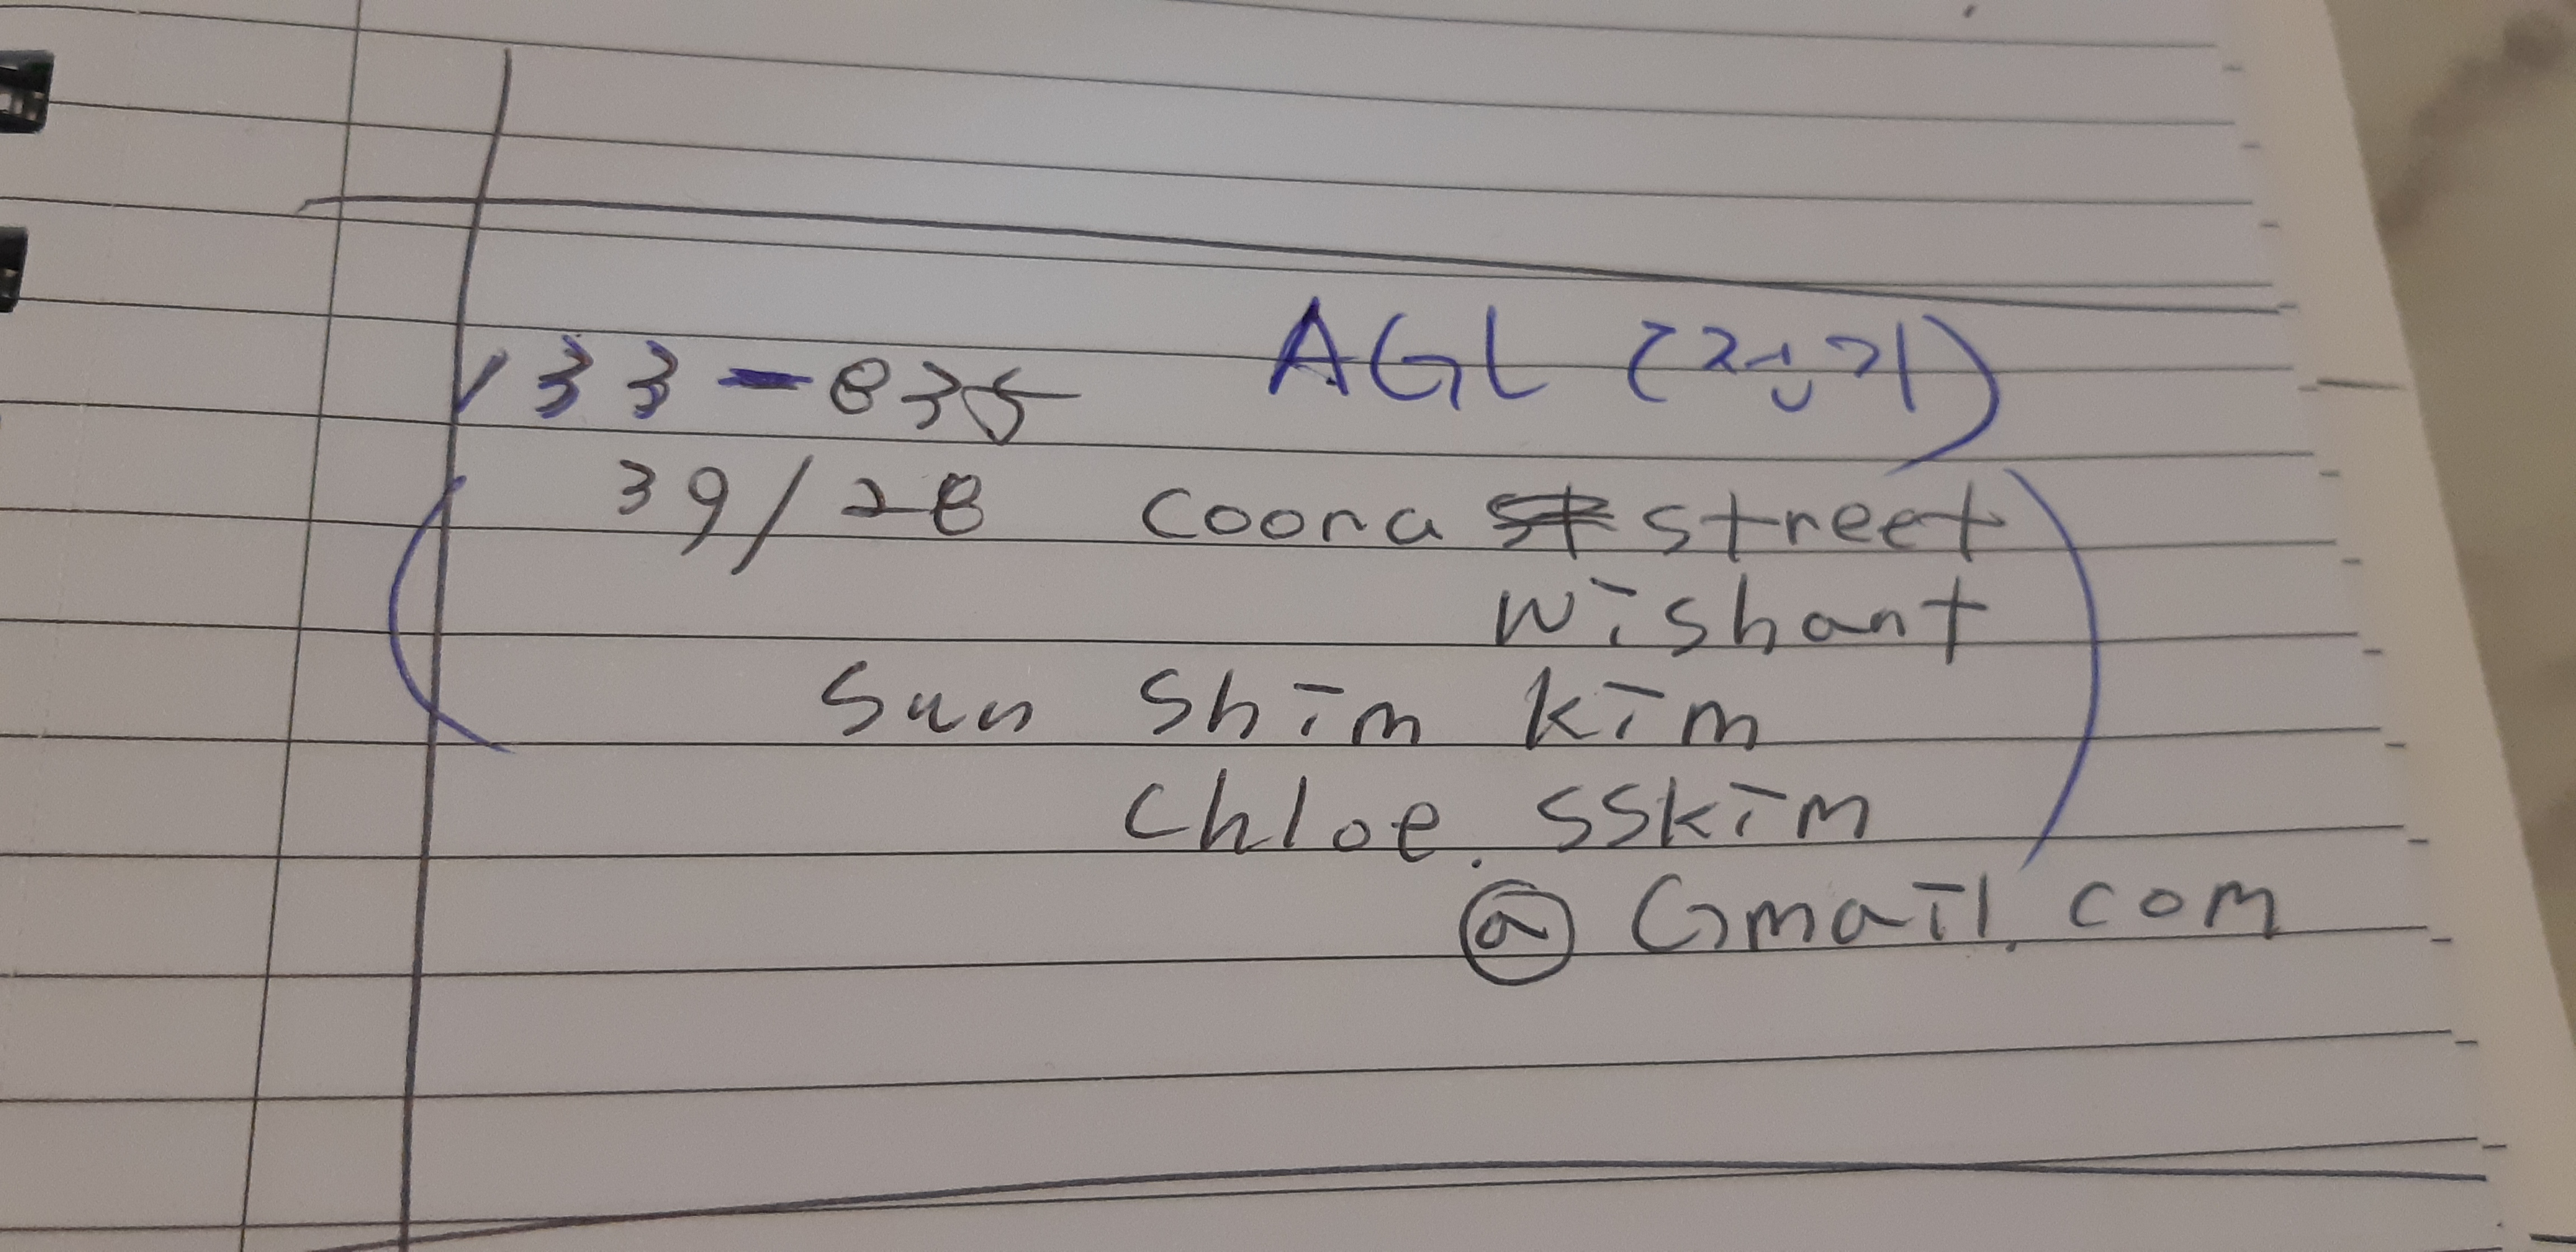 133-835 AGL (전기)
39/28 Coona street
Wishant
Sun Shim kim
Chloe.sskim
@ Gmail.com